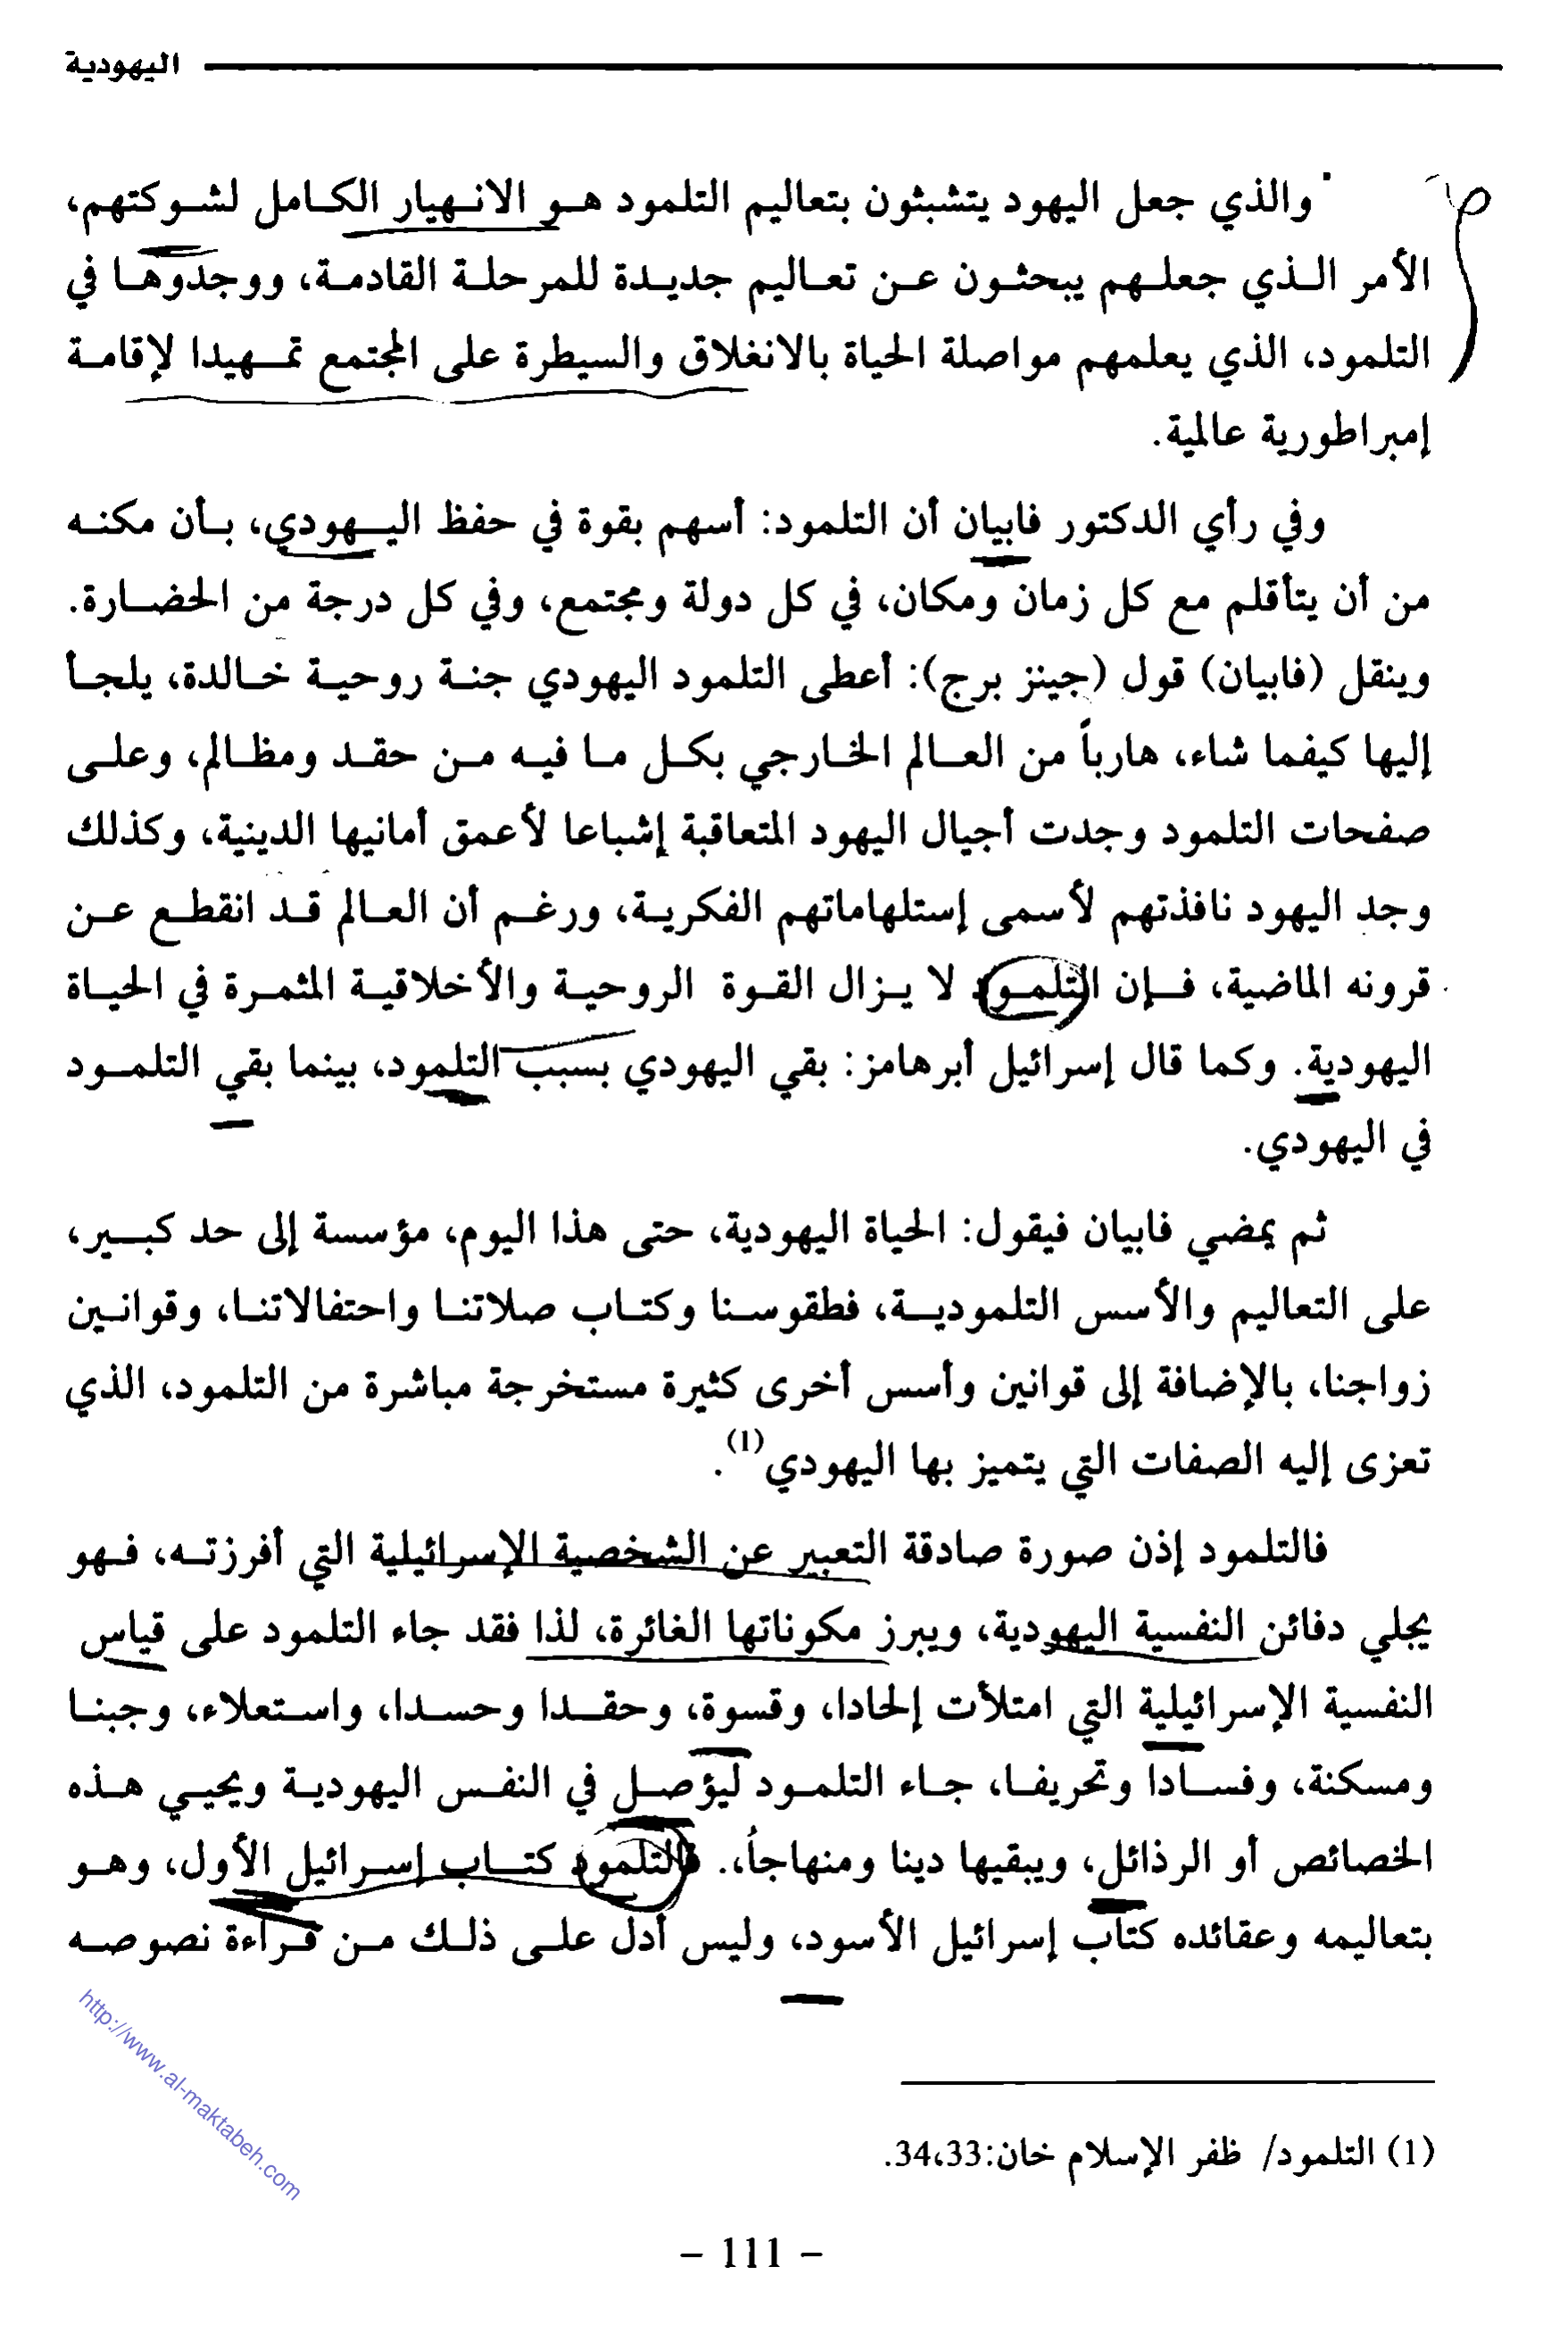 اليهودية
والذي جعل اليهود يتشبثون بتعاليم التلمود هو الانهيار الكامل لشوكتهم،
الأمر الذي جعلهم يبحثون عن تعاليم جديدة للمرحلة القادمة، ووجدوها في
التلمود، الذي يعلمهم مواصلة الحياة بالانغلاق والسيطرة على المجتمع تمهيدا لإقامة
إمبراطورية عالمية.
وفي رأي الدكتور فابيان أن التلمود: أسهم بقوة في حفظ اليهودي، بأن مكنه
من أن يتأقلم مع كل زمان ومكان، في كل دولة ومجتمع، وفي كل درجة من الحضارة.
وينقل (فابيان) قول (جينز برج): أعطى التلمود اليهودي جنة روحية خالدة، يلجأ
إليها كيفما شاء، هارباً من العالم الخارجي بكل ما فيه من حقد ومظالم، وعلى
صفحات التلمود وجدت أجيال اليهود المتعاقبة إشباعا لأعمق أمانيها الدينية، وكذلك
وجد اليهود نافذتهم لأسمى إستلهاماتهم الفكرية، ورغم أن العالم قد انقطع عن
قرونه الماضية، فإن التلمود لا يزال القوة الروحية والأخلاقية المثمرة في الحياة
اليهودية. وكما قال إسرائيل أبرهامز: بقي اليهودي بسبب التلمود، بينما بقي التلمود
في اليهودي.
ثم يمضي فابيان فيقول: الحياة اليهودية، حتى هذا اليوم، مؤسسة إلى حد كبير،
على التعاليم والأسس التلمودية، فطقوسنا وكتاب صلاتنا واحتفالاتنا، وقوانين
زواجنا، بالإضافة إلى قوانين وأسس أخرى كثيرة مستخرجة مباشرة من التلمود، الذي
تعزى إليه الصفات التي يتميز بها اليهودي(1).
فالتلمود إذن صورة صادقة التعبير عن الشخصية الإسرائيلية التي أفرزته، فهو
يجلي دفائن النفسية اليهودية، ويبرز مكوناتها الغائرة، لذا فقد جاء التلمود على قياس
النفسية الإسرائيلية التي امتلأت إلحادا، وقسوة، وحقدا وحسدا، واستعلاء، وجبنا
ومسكنة، وفسادا وتحريفا، جاء التلمود ليؤصل في النفس اليهودية ويحيي هذه
الخصائص أو الرذائل، ويبقيها دينا ومنهاجاً،. فالتلمود كتاب إسرائيل الأول، وهو
بتعاليمه وعقائده كتاب إسرائيل الأسود، وليس أدل على ذلك من قراءة نصوصه
(1) التلمود/ ظفر الإسلام خان:33،34.
http://www.al-maktabeh.com
- 111 -